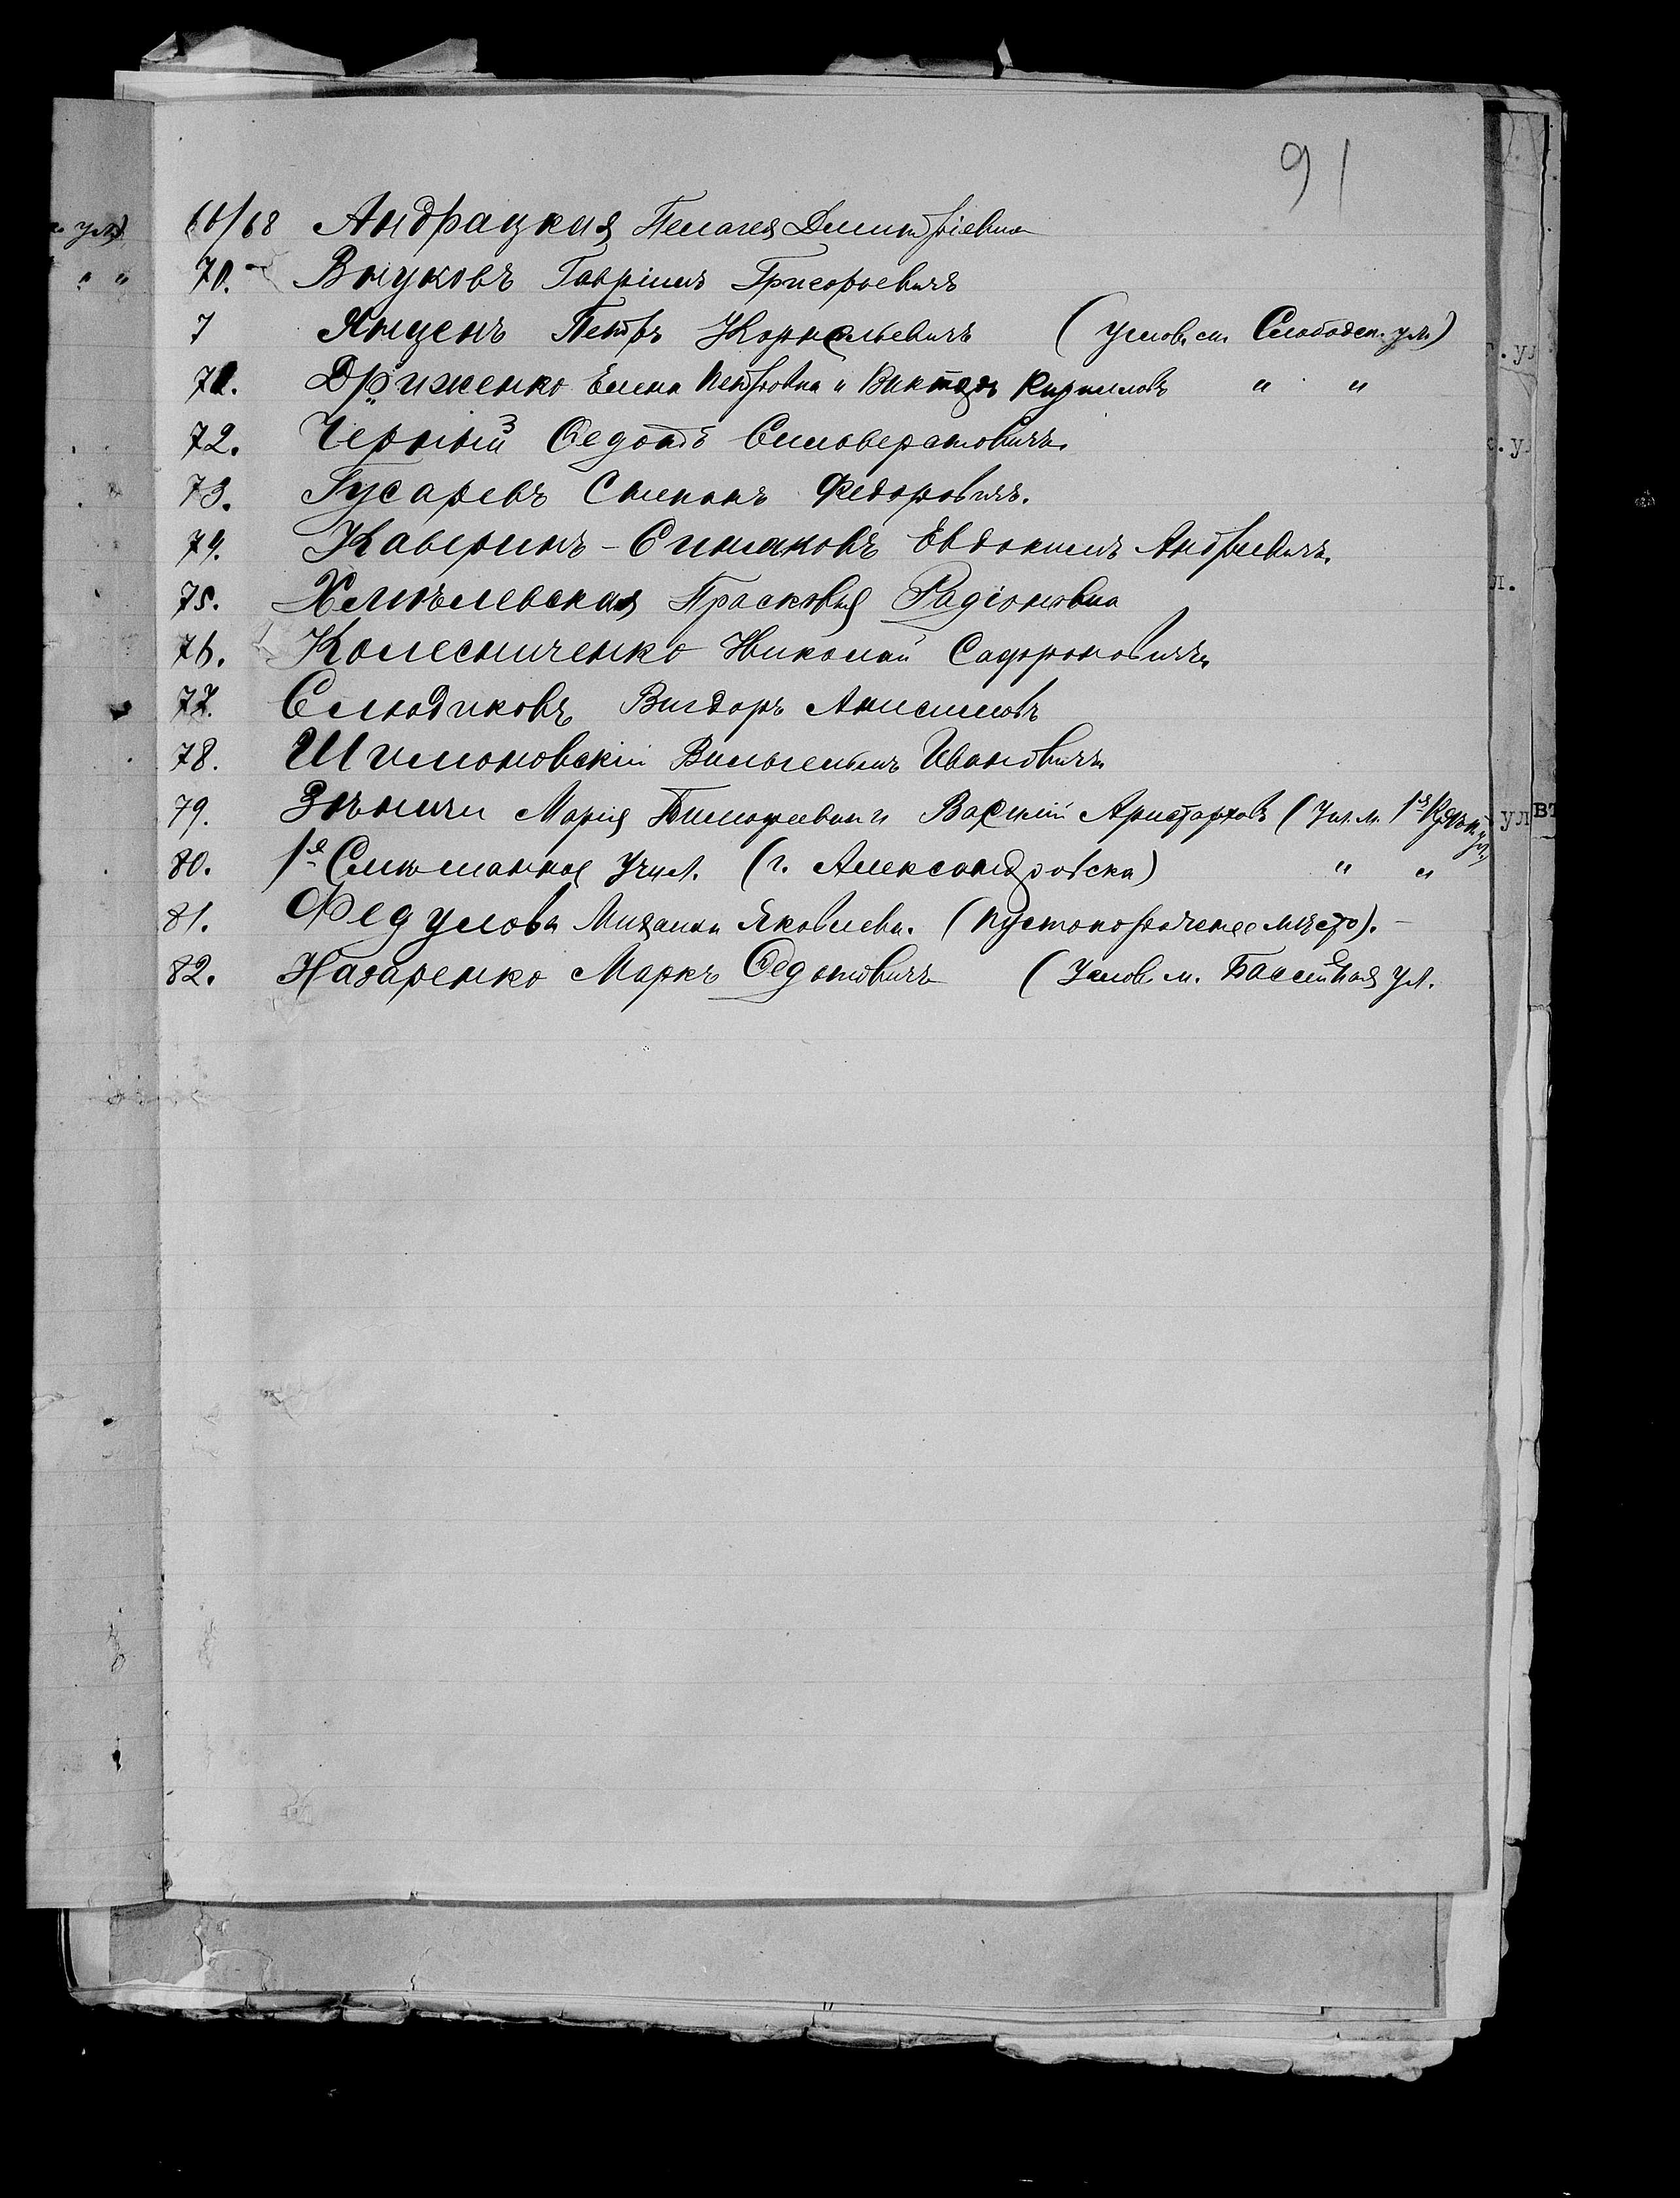 91
68 Андрацкая Пелагея Димитріевна
70. Внуковъ Гавріилъ Григорьевичъ
7 Янценъ Петръ Корнельевичъ (углов. м. Слободск. ул.)
71. Дриженко Елена Петровна и Викторъ Кириловъ " "
72. Черный Федотъ Селиверстовичъ.
73. Гусаревъ Степанъ Федоровичъ.
74. Каверинъ-Симаковъ Евдокимъ Андреевичъ.
75. Хмѣлевская Прасковья Радіоновна
76. Колесниченко Николай Сафроновичъ
77. Слюдиковъ Анисимовъ
78. Шимоновскій Вильгельмъ Ивановичъ
79. Марія и Василій Аристарховъ
80. 1е Смѣшанное Учил. (г. Александровска) " "
81. Федулова Яковлевн. (пустопорожнее мѣсто). –
82. Назаренко Маркъ Федотовичъ (Углов м. Бассейная ул.
ул